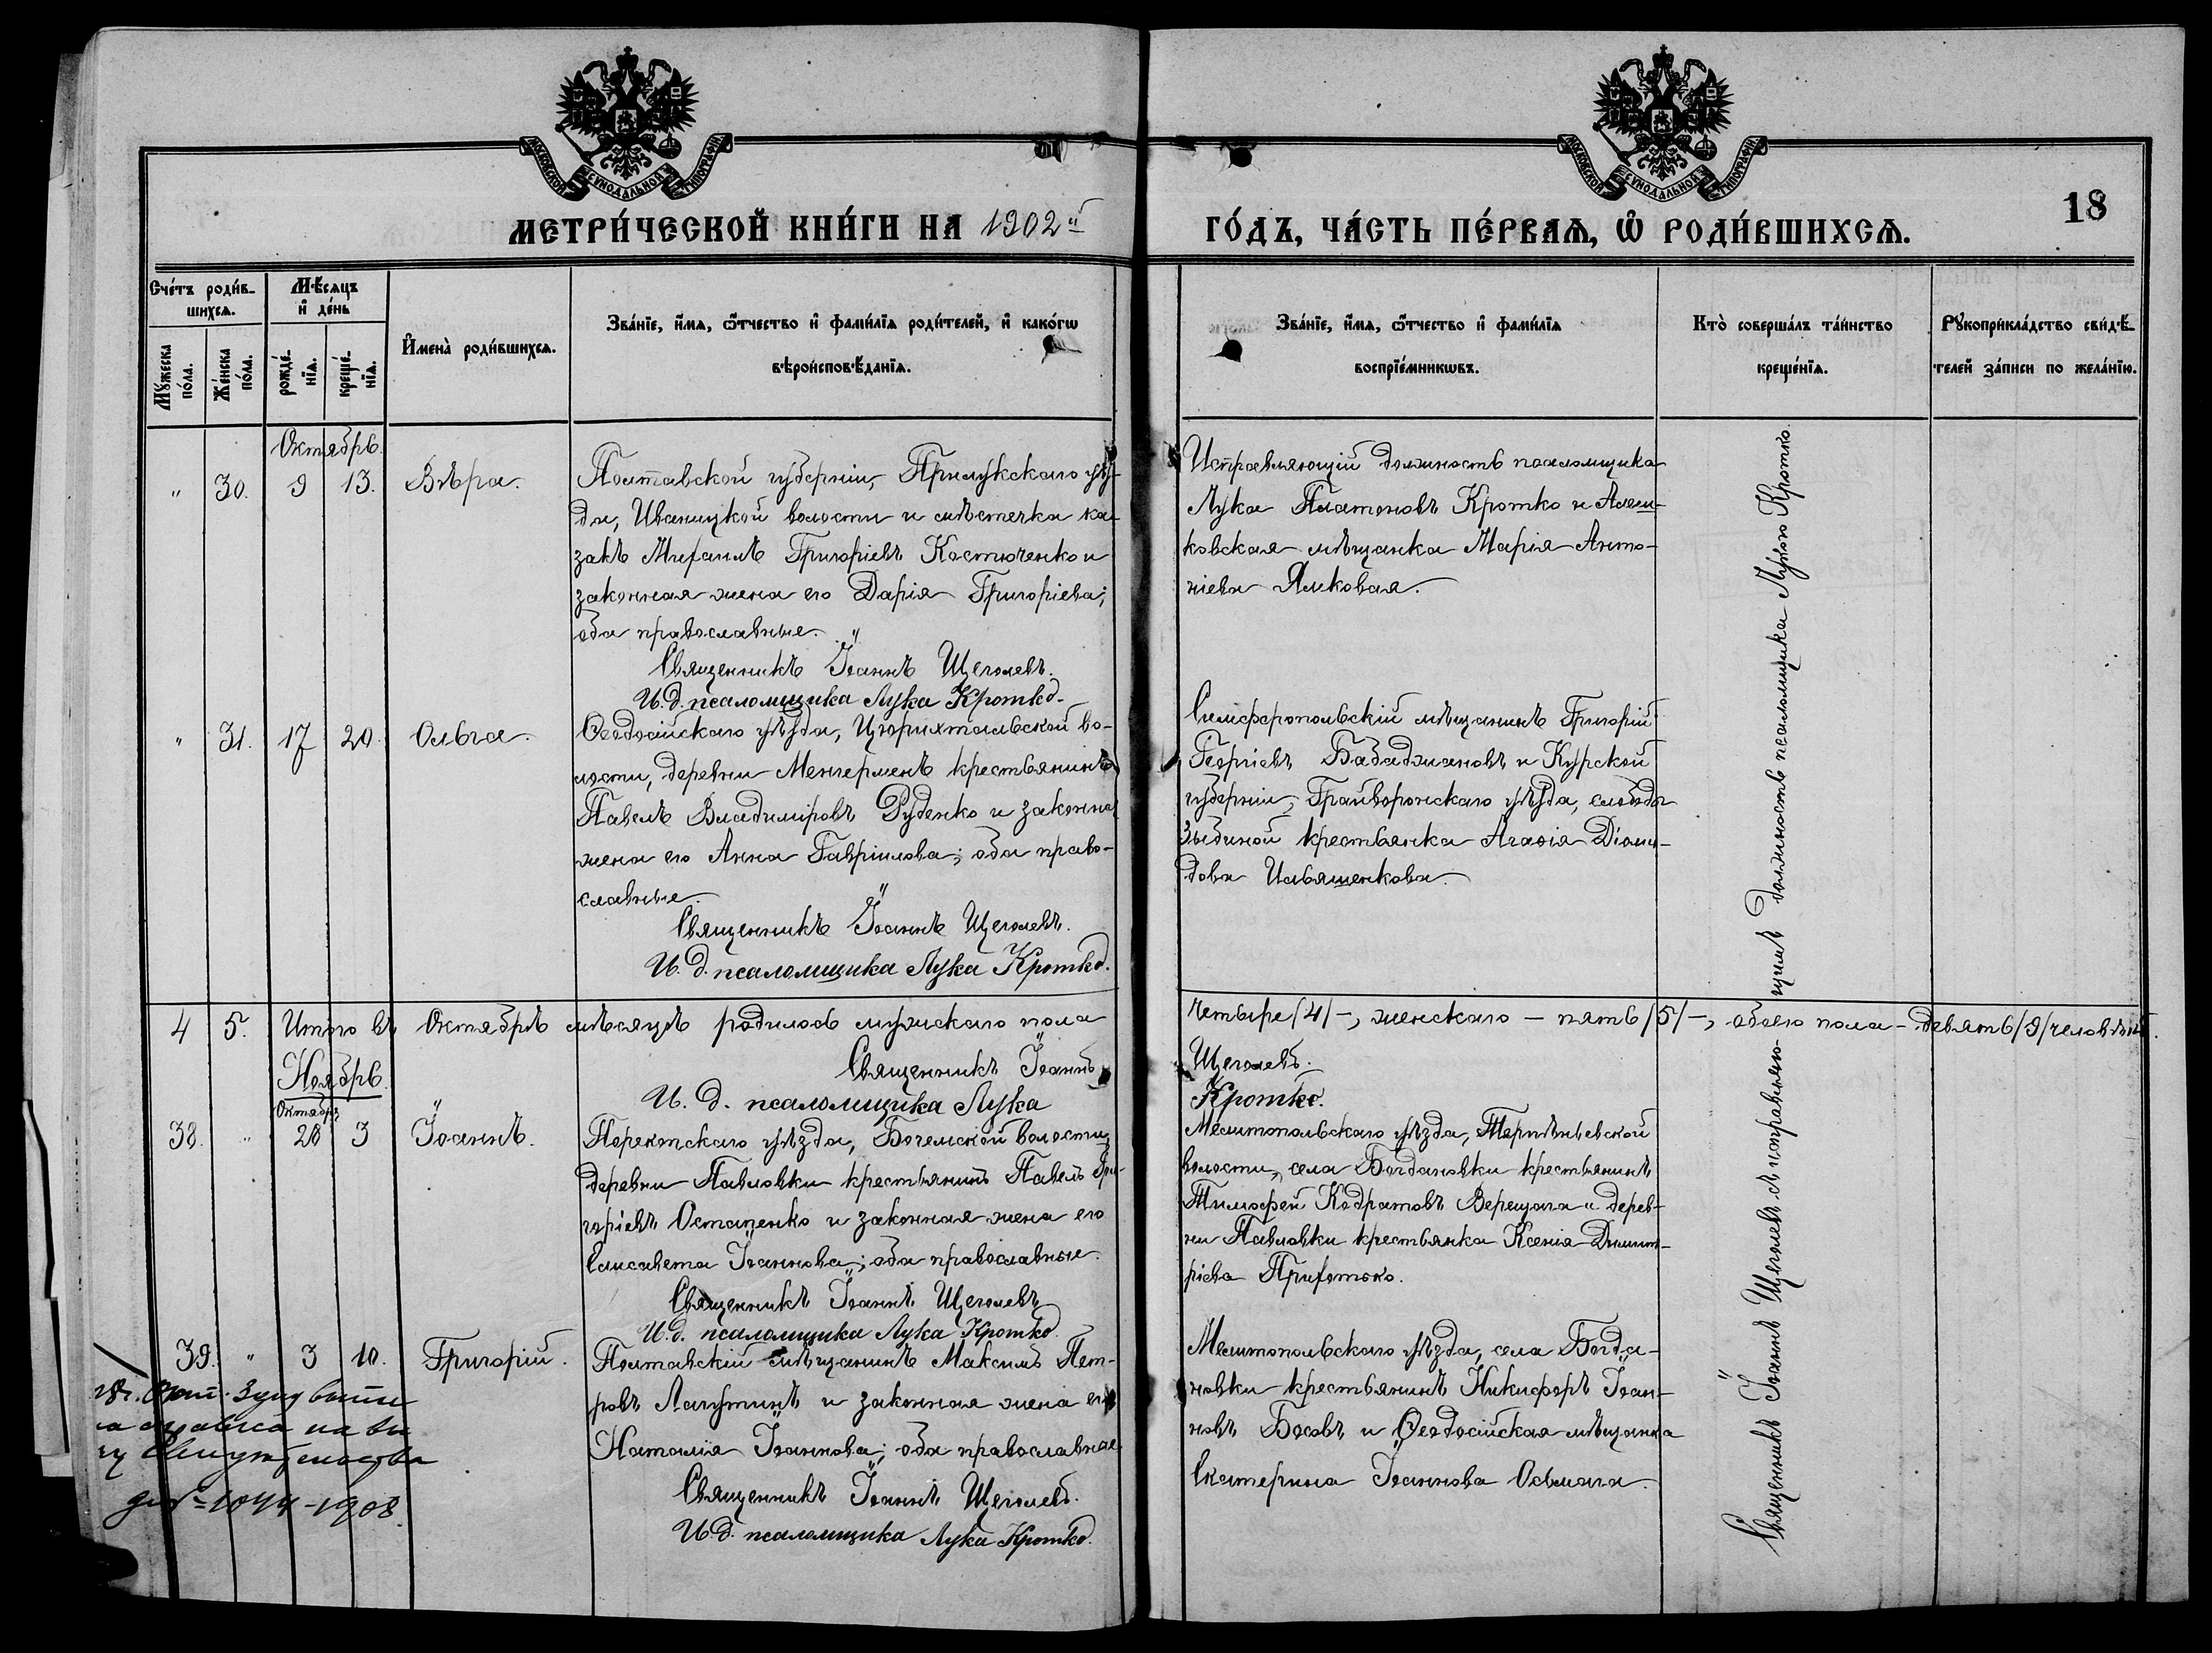 МОСКОВСКОЙ СѴНОДАЛЬНОЙ ТИПОГРАФІИ.
МОСКОВСКОЙ СѴНОДАЛЬНОЙ ТИПОГРАФІИ.
МЕТРИ́ЧЕСКОЙ КНИ́ГИ НА 1902й
ГО́ДЪ, ЧА́СТЬ ПЕ́РВАѦ, Ѿ РОДИ́ВШИХСѦ.
18
Сче́тъ роди́в-
шихсѧ.
Мꙋжеска по́ла.
Же́нска по́ла.
Мѣ́сѧцъ
и҆ де́нь
рожде́-
нїѧ.
креще́-
нїѧ.
И҆мена̀ роди́вшихсѧ.
Зва́нїе, и҆́мѧ, ѻ҆́тчество и҆ фами́лїѧ роди́телей, и҆ како́гѡ
вѣроисповѣ́данїѧ.
Зва́нїе, и҆́мѧ, ѻ҆́тчество и҆ фами́лїѧ
воспрїе́мникѡвъ.
Кто̀ соверша́лъ та́инство
креще́нїѧ.
Рꙋкоприкла́дство свидѣ́-
телей за́писи по жела́нїю.
Октябрь.
" 30. 9 13. Вѣра.
Полтавской губерніи, Прилукскаго уѣз-
да, Иваницкой волости и мѣстечка ка-
закъ Михаилъ Григоріевъ Костюченко и
законная жена его Дарія Григоріева;
оба православные.
Священникъ Іоаннъ Щеголевъ.
И. д. псаломщика Лука Кротко.
Исправляющій должность псаломщика
Лука Платоновъ Кротко и Алеш-
ковская мѣщанка Марія Анто-
ніева Ялковая.
" 31. 17 20. Ольга.
Ѳеодосійскаго уѣзда, Цюрихтальской во-
лости, деревни Менгерменъ крестьянинъ
Павелъ Владиміровъ Руденко и законная
жена его Анна Гавріилова; оба право-
славные.
Священникъ Іоаннъ Щеголевъ.
И. д. псаломщика Лука Кротко.
Симферопольскій мѣщанинъ Григорій
Георгіевъ Бабаджановъ и Курской
губерніи, Грайворонскаго уѣзда, слободы
Зыбиной крестьянка Агаѳія Діоми-
дова Ильяшенкова.
4 5. Итого въ Октябрѣ мѣсяцѣ родилось мужскаго пола
четыре /4/ -, женскаго - пять /5/ -, обоего пола - девять /9/ человѣкъ.
Священникъ Іоаннъ Щеголевъ.
И. д. псаломщика Лука Кротко.
Ноябрь.
Октября
38. " 28 3 Іоаннъ.
Перекопскаго уѣзда, Богемской волости,
деревни Павловки крестьянинъ Павелъ Гри-
горіевъ Остапенко и законная жена его
Елисавета Іоаннова; оба православные.
Священникъ Іоаннъ Щеголевъ.
И. д. псаломщика Лука Кротко.
Мелитопольскаго уѣзда, Терпѣньевской
волости, села Богдановки крестьянинъ
Тимофей Кодратовъ Верещага и дерев-
ни Павловки крестьянка Ксенія Димит-
ріева Приходько.
39. " 3 10. Григорій.
Полтавскій мѣщанинъ Максимъ Пет-
ровъ Лагутинъ и законная жена его
Наталія Іоаннова; оба православные
Священникъ Іоаннъ Щеголевъ.
И. д. псаломщика Лука Кротко.
Мелитопольскаго уѣзда, села Богда-
новки крестьянинъ Никифоръ Іоан-
новъ Босовъ и Ѳеодосійская мѣщанка
Екатерина Іоаннова Осьмага.
Священникъ Іоаннъ Щеголевъ съ исправляющимъ должность псаломщика Лукою Кротко.
1044-1908